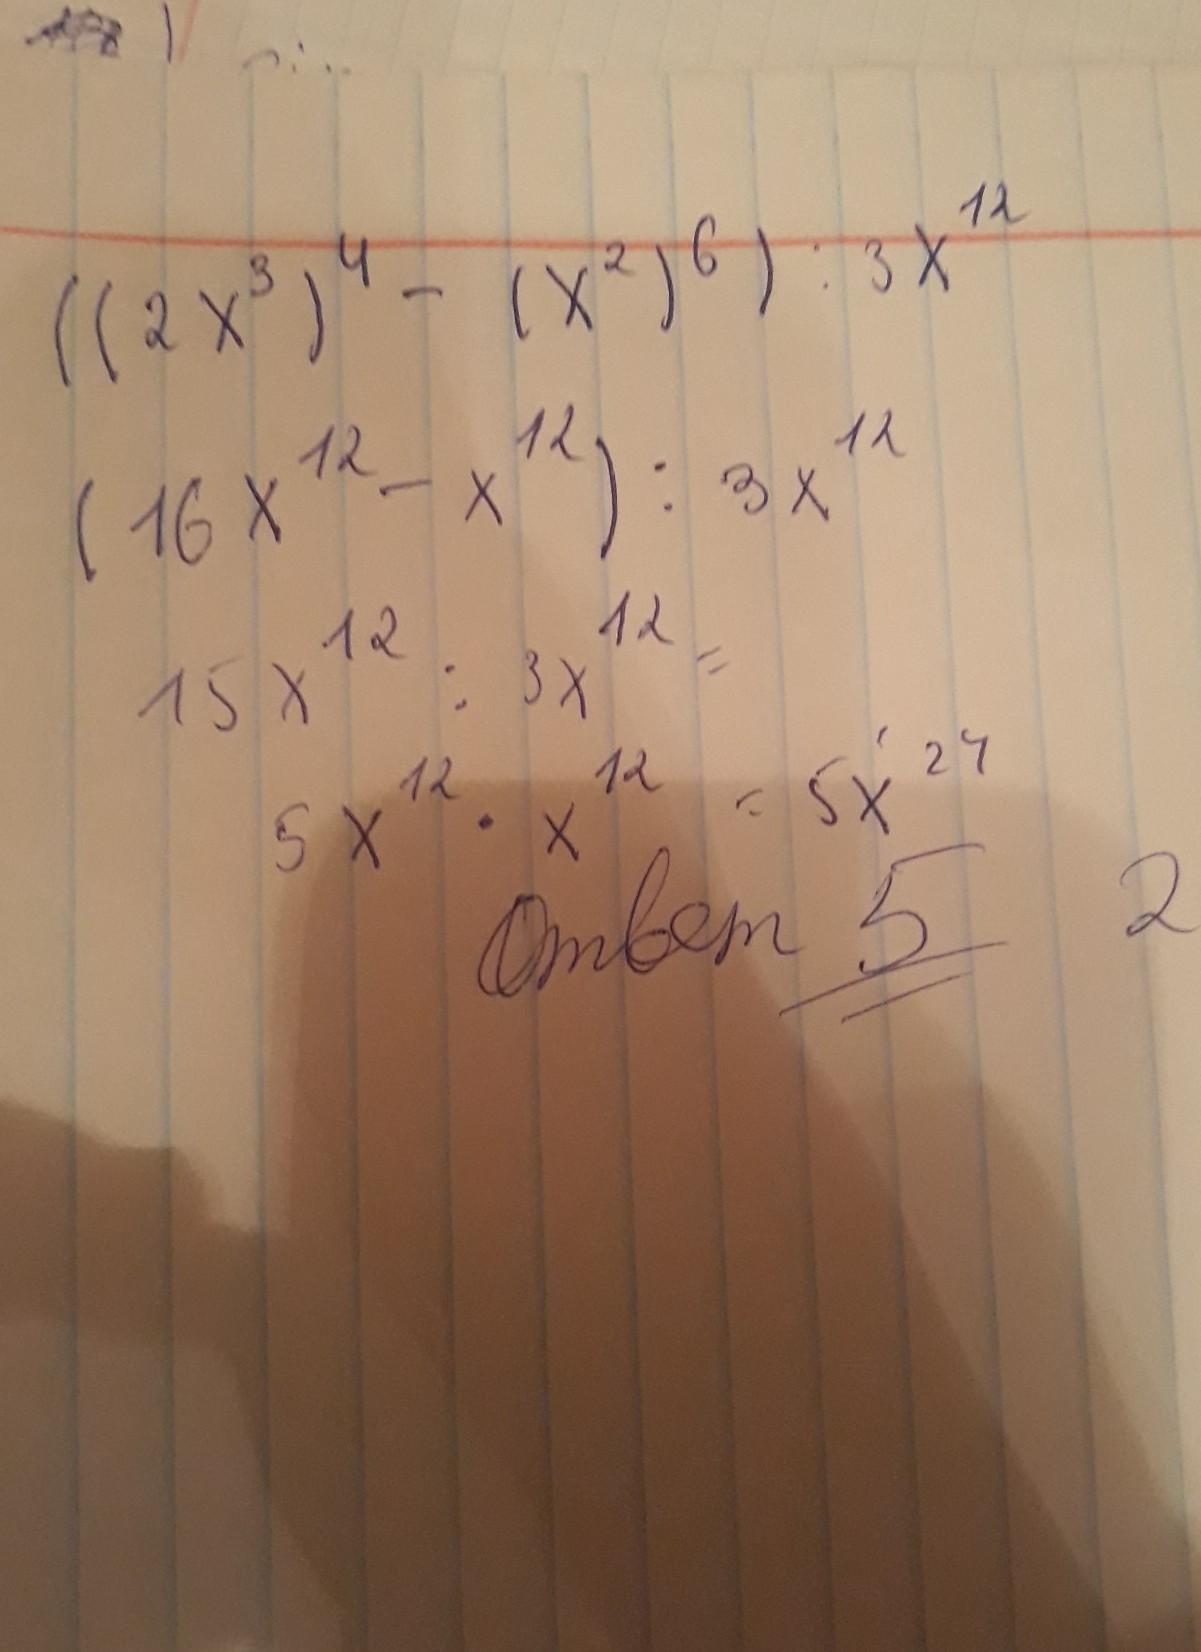 ((2x³)⁴ - (x²)⁶) : 3x¹²
(16x¹² - x¹²) : 3x¹²
15x¹² : 3x¹² =
5x¹² · x¹² = 5x²⁴
Ответ 5 2